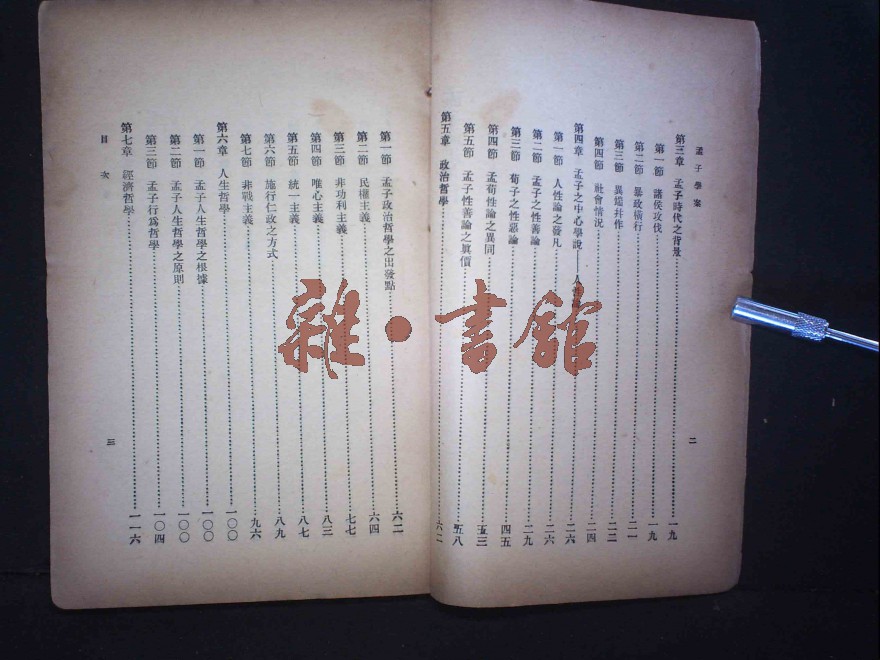 孟子學案
第三章 孟子時代之背景…一九
第一節 諸侯攻伐…一九
第二節 暴政橫行…二一
第三節 異端并作…二二
第四節 社會情況…二四
第四章 孟子之中心學說——人…二六
第一節 人性論之發凡…二六
第二節 孟子之性善論…二九
第三節 荀子之性惡論…四五
第四節 孟荀性論之異同…五三
第五節 孟子性善論之眞價…五八
第五章 政治哲學…六二
二
第一節 孟子政治哲學之出發點…六二
第二節 民權主義…六四
第三節 非功利主義…七七
第四節 唯心主義…八三
第五節 統一主義…八七
第六節 施行仁政之方式…八九
第七節 非戰主義…九六
第六章 人生哲學…一〇〇
第一節 孟子人生哲學之根據…一〇〇
第二節 孟子人生哲學之原則…一〇〇
第三節 孟子行爲哲學…一〇四
第七章 經濟哲學…一一六
目次
三
雜·書館